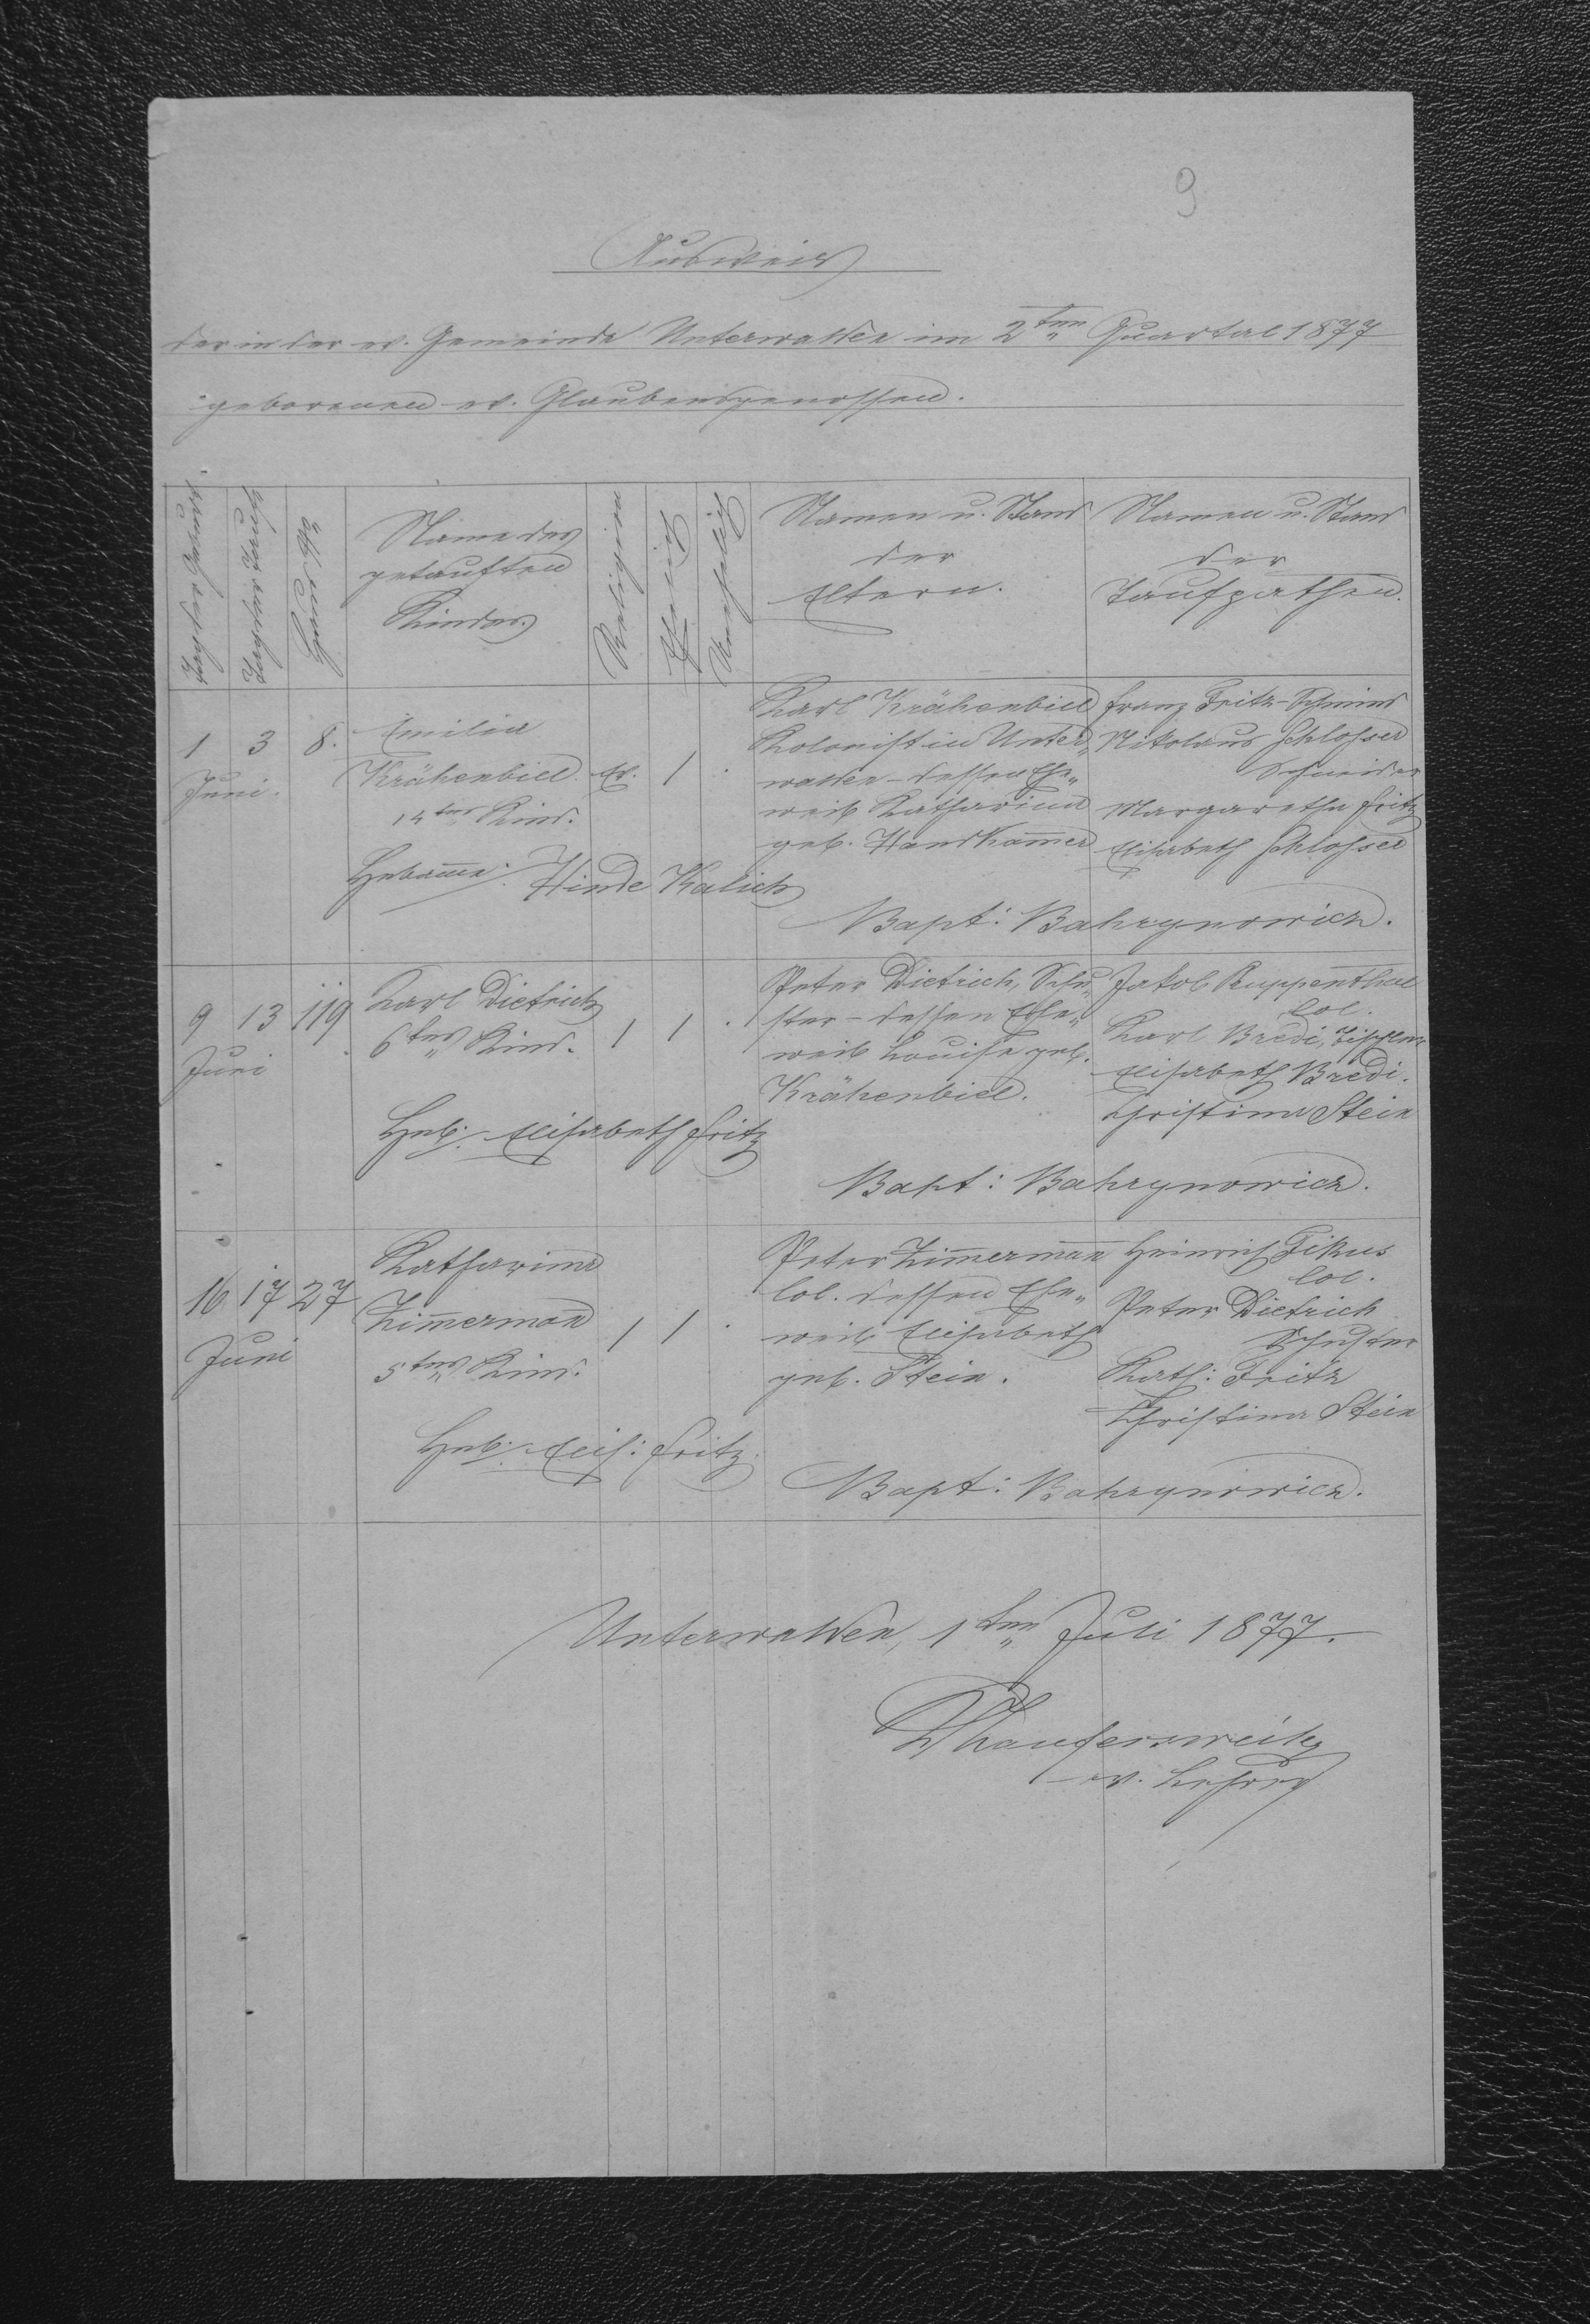 9
Ausweis
der in der ev. Gemeinde Unterwalden im 2ten Quartal 1877
geborenen ev. Glaubensgenossen.
Tag der Geburt
Tag der Taufe
Haus No
Name des
getauften
Kindes
Religion
Ehelich
Unehelich
Namen u. Stand
der
Eltern.
Namen u. Stand
der
Taufpathen.
1 3 8.
Juni.
Emilia
Krähenbiel
14tes Kind.
ev. 1 .
Karl Krähenbiel
Kolonist in Unter„
walden – dessen Ehe„
weib Katharina
geb. Handkam̄er
Franz Fritz – Schmied
Nikolaus Schlosser
Schneider
Margaretha Fritz
Elisabeth Schlosser
Hebam̄e: Hinde Kalich
Bapt: Bahrynowicz.
9 13 119
Juni
Karl Dietrich
6tes Kind.
1 1 .
Peter Dietrich, Schu„
ster – dessen Ehe„
weib Louise geb.
Krähenbiel.
Jakob Ruppenthal
Col.
Karl Bredi, Tischler
Elisabeth Bredi.
Christina Stein
Heb: Elisabeth Fritz
Bapt: Bahrynowicz.
16 17 27
Juni
Katharina
Zim̄erman̄
5tes Kind.
1 1 .
Peter Zim̄erman̄
Col. dessen Ehe„
weib Elisabeth
geb. Stein.
Heinrich Fikus
Col.
Peter Dietrich
Schuster
Kath: Fritz
Christina Stein
Heb: Elis: Fritz.
Bapt: Bahrynowicz.
Unterwalden, 1ten Juli 1877.
ev. Lehrer